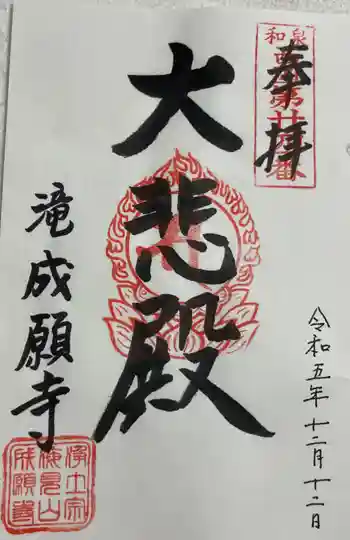 和泉
第廿
番
奉拝
大悲殿
滝成願寺
令和五年十二月十二日
浄土宗
見山
成願寺